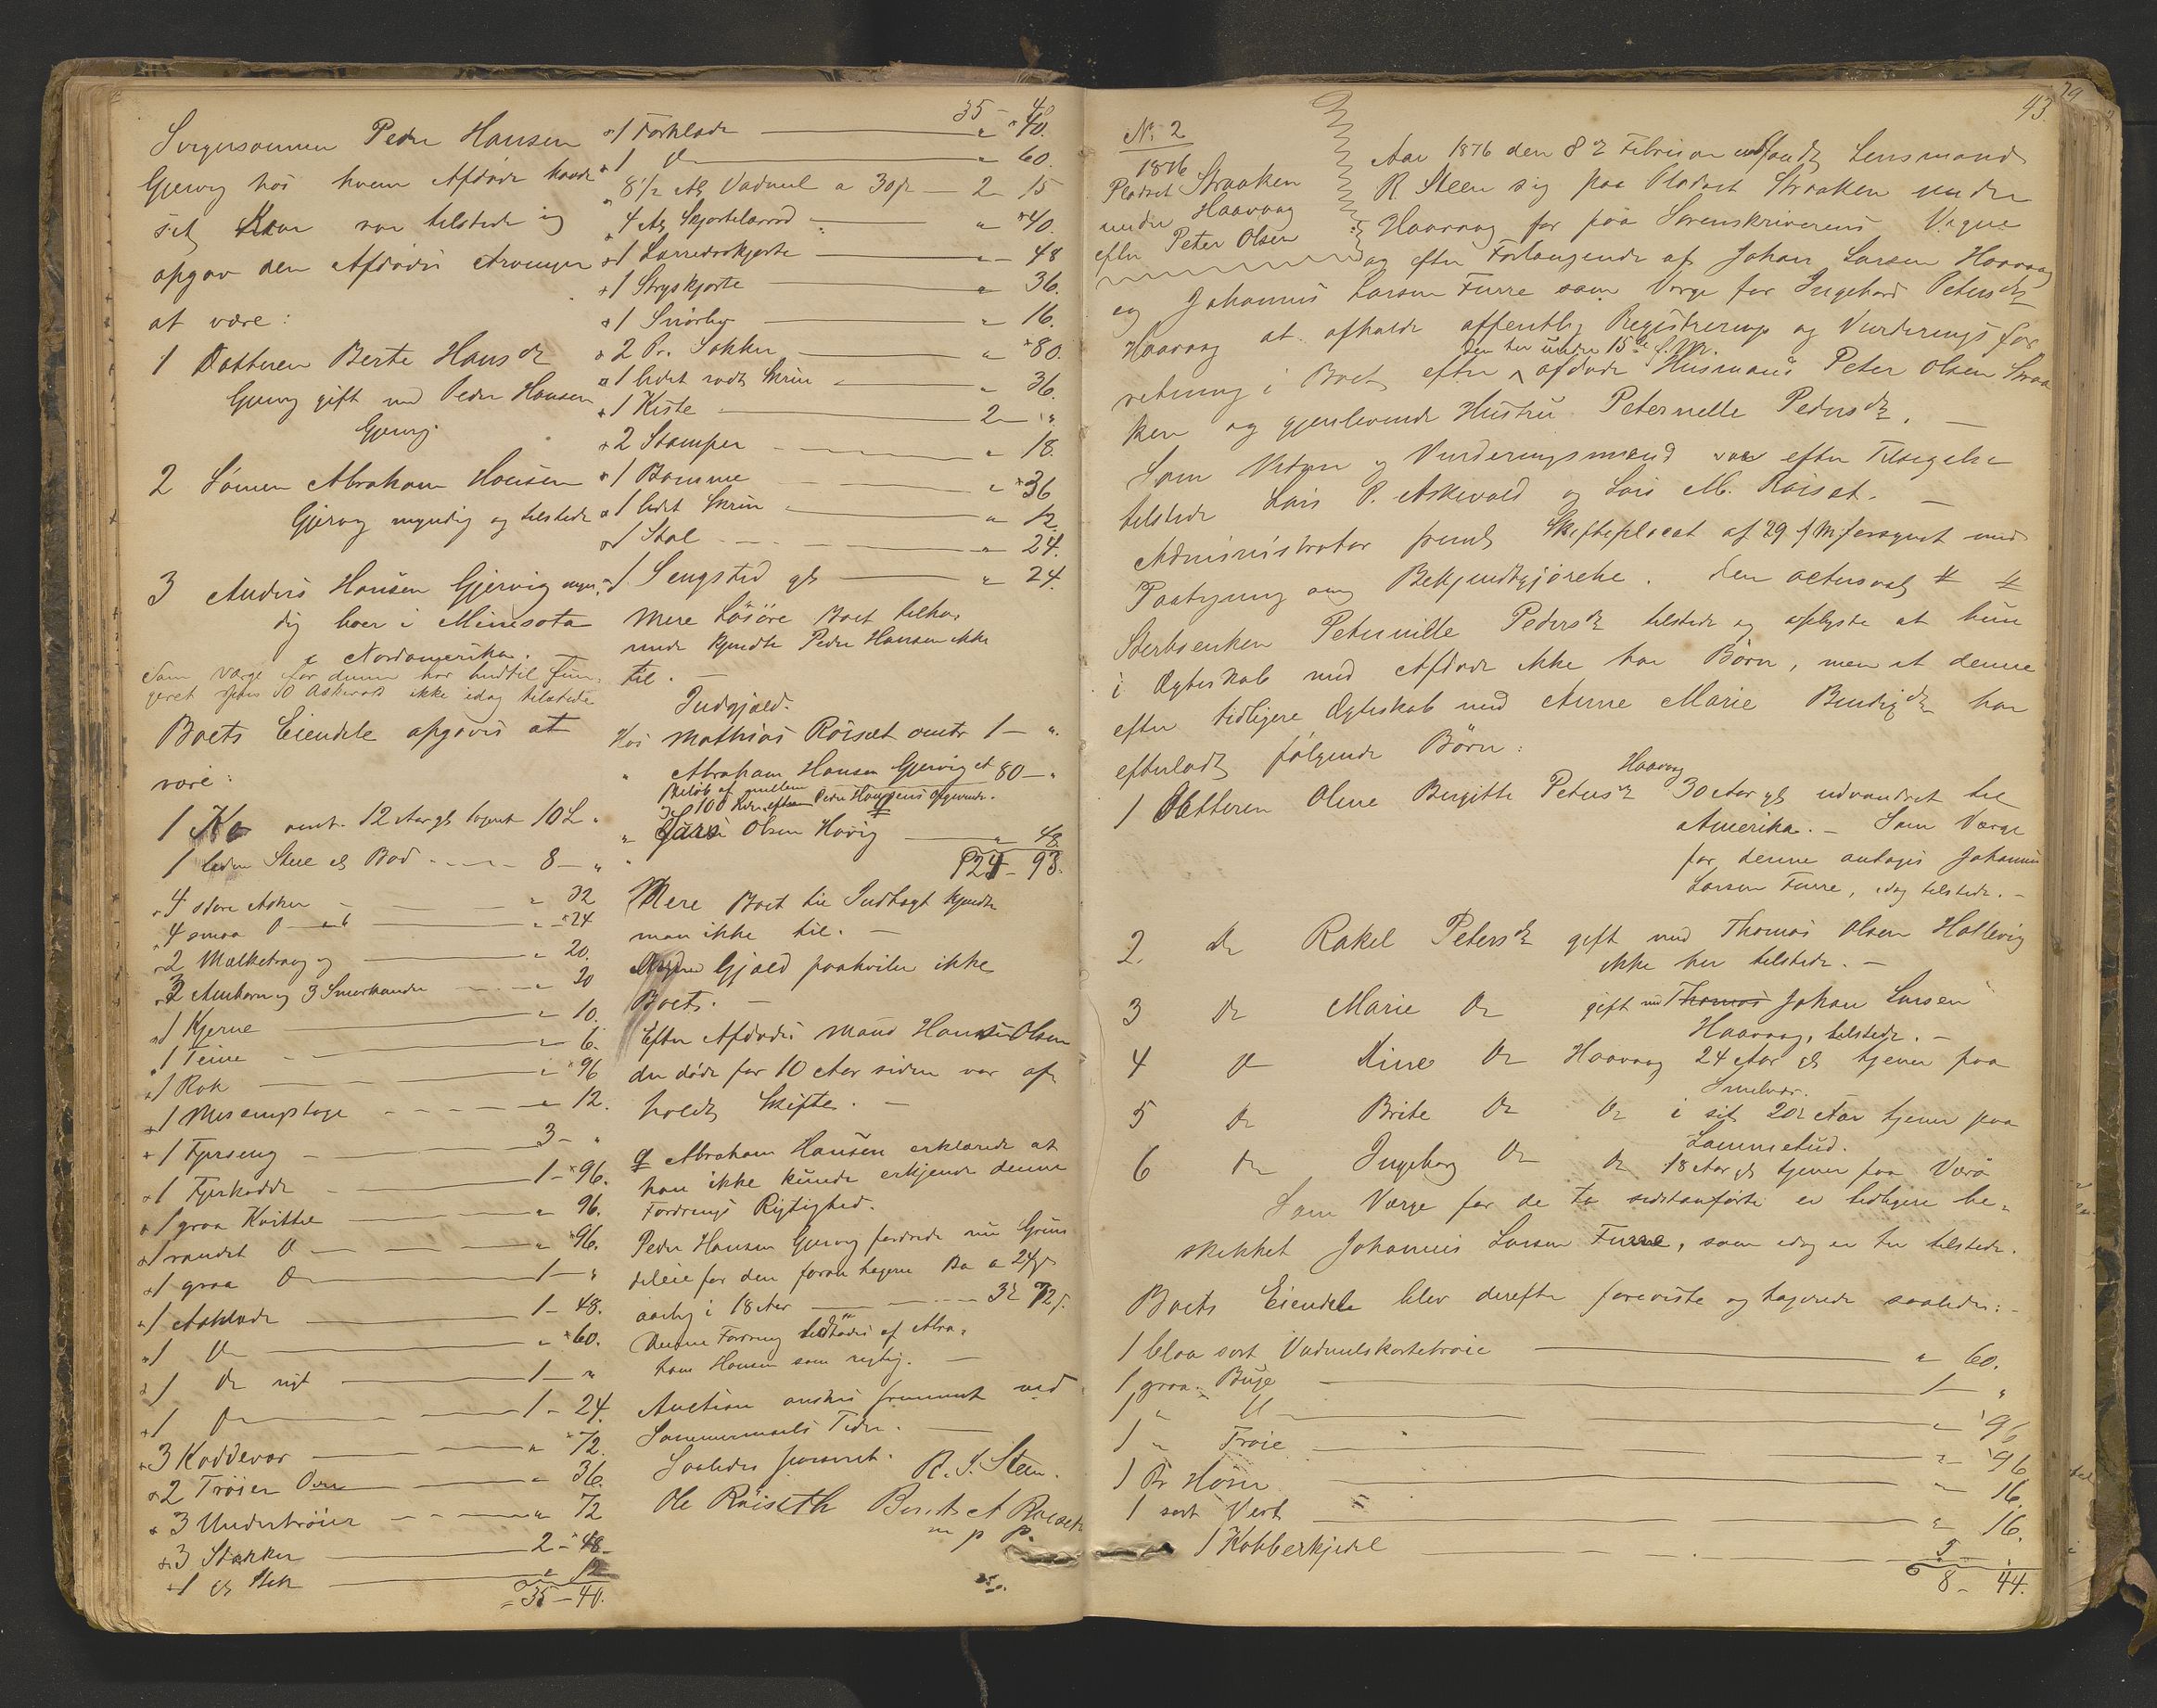 Svigersønnen Peder Hansen
Gjervig hos hvem Afdøde havde
sit Kaar var tilstede og
opgav den Afdødes Arvinger
at være:
1 Datteren Berte Hansdr
Gjervig gift med Peder Hansen
Gjervig
2 Sønnen Abraham Hansen
Gjervig myndig og tilstede
3 Anders Hansen Gjervig myn-
dig boer i Minisota
i Nordamerika. —
Som Værge for denne har hidtil fun-
geret O Askevold ikke idag tilstede
Boets Eiendele opgaves at
være:
1 Ko omt. 12 Aar gl 10 "
1 liden Stue og Bod — 8 — "
4 store Asker — " 32
4 smaa D — " 24
2 Melketraug — " 20.
2 Ambarn og 3 Smørkander — " 20
1 Kjerne — " 10.
1 Teine — " 6.
1 Rok — " 96
1 — " 12.
1 Fjerseng — 3 — "
1 Fjerkodde — 1 — 96.
1 graa Kvittel — " 96.
1 randet D — " 96.
1 graa D — 1 — "
1 Aaklæde — 1 — 48.
1 D — " 60.
1 Do nyt — 1 — "
1 D — 1 — 24.
3 Koddevar — " 72.
2 Trøier — " 36.
3 Undertrøier — " 72
3 Stakker — 2 — 48
1 gl Stak — " 12
35 — 40.
35 — 40
1 Forklæde — " 40.
1 D — " 60.
8 1/2 Al Vadmel a 30 — 2 — 15
4 Al Skjortelærred — " 40.
1 Lærredsskjorte — " 48
1 Stryskjorte — " 36.
1 Snørliv — " 16.
2 Pr. Sokker — " 80.
1 lidet rødt Skrin — " 36.
1 Kiste — 2 — "
2 Stamper — " 18.
1 Bomme — " 36
1 lidet Skrin — " 12.
1 Stol — " 24.
1 Sengsted gl — " 24.
Mere Løsøre Boet tilhø-
rende kjendte Peder Hansen ikke
til. —
Indgjæld.
Hos Mathias Røiset omtr 1 — "
" Abraham Hansen Gjervig et 80 — "
Beløb af mellem
og 100 Kr. efter Peder Hansens Opgivende.
" Lars Olsen Hovig — " 48
124 — 93.
Mere Boet til Indtægt kjendte
man ikke til. —
Nogen Gjæld paahviler ikke
Boet. —
Efter Afdødes Mand Hans Olsen
der døde for 10 Aar siden var af-
holdt Skifte. —
Abraham Hansen erklærede at
han ikke kunde erkjende denne
Fordrings Rigtighed.
Peder Hansen Gjervig fordrede nu Græs
leie for den foran tagerne Bo a 24
aarlig i 18 Aar — 3 72
Denne Fordring af Abra-
ham Hansen som rigtig. —
Auction ønskes fremmet ved
Sommermaals Tider. —
Saaledes passeret.
R. J. Steen.
Ole Røiseth Berndt A Røiset
m p P.
43.
No 2
1876
Pladset Straaken
under Haavaag
efter Peter Olsen
Aar 1876 den 8de Februar indfandt Lensmand
R Steen sig paa Pladset Straaken under
Haavaag for paa Sorenskriverens Vegne
og efter Forlangende af Johan Larsen Haavaag
og Johannes Larsen Furre som Værge for Ingeborg Petersdr
Haavaag at afholde offentlig Registrerings og Vurderings for
den her under 15de f. M.
retning i Boet efter ^ afdøde Husmand Peter Olsen Straa
ken og gjenlevende Hustru Peternelle Pedersdr. —
Som Vidner og Vurderingsmænd var efter Tilsigelse
tilstede Lars P. Askevold og Lars M. Røiset. —
Administrator fremlagde Skifteplacat af 29 f M forsynet med
Paategning om Bekjendtgjørelse. Den acteres
Sterboenken Peternille Pedersdr tilstede og oplyste at hun
i Ægteskab med Afdøde ikke har Børn, men at denne
efter tidligere Ægteskab med Anne Marie Bendigdr har
efterladt følgende Børn:
1 Datteren Oline Bergitte Petersdr Haavaag 30 Aar gl udvandret til
Amerika. — Som Værge
for denne antages Johannes
Larsen Furre, idag tilstede. —
2. Do Rakel Petersdr gift med Thomas Olsen Hatlevig
ikke her tilstede. —
3 Do Marie Do gift med Thomas Johan Larsen
Haavaag, tilstede. —
4 Do Do Haavaag 24 Aar gl tjener paa
5 Do Brite Do Do i sit 20de Aar tjener paa
6 Do Ingeborg Do Do 18 Aar gl tjener paa Værø
Som Værge for de to sidstanførte er tidligere be-
skikket Johannes Larsen Furre, som idag er her tilstede.
Boets Eiendele blev derefter foreviste og taxerede saaledes: —
1 blaa sort Vadmelskortetrøie — " 60.
1 graa Buxe — 1 — "
1 " D — " 96
1 " Trøie — " 96
1 Pr Hoser — " 16.
1 sort Vest — " 16.
1 Kobberkjedel — 5 —
8 — 44.